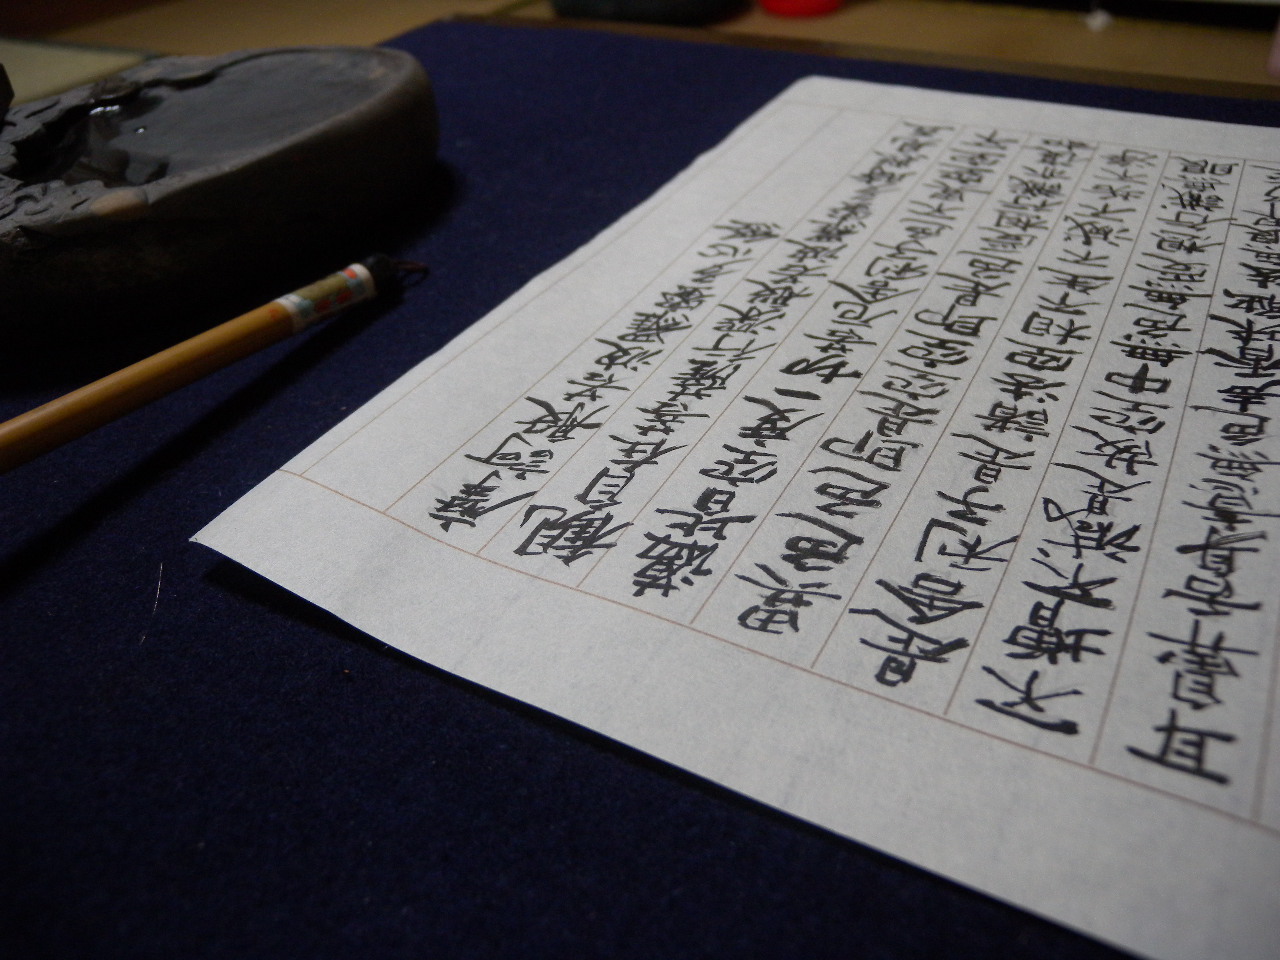 摩訶般若波羅蜜多心経
観自在菩薩行深般若波羅蜜多時照見五
蘊皆空度一切苦厄舎利子色不異空空不
異色色即是空空即是色受想行識亦復如
是舎利子是諸法空相不生不滅不垢不浄
不増不減是故空中無色無受想行識無眼
耳鼻舌身意無色声香味触法